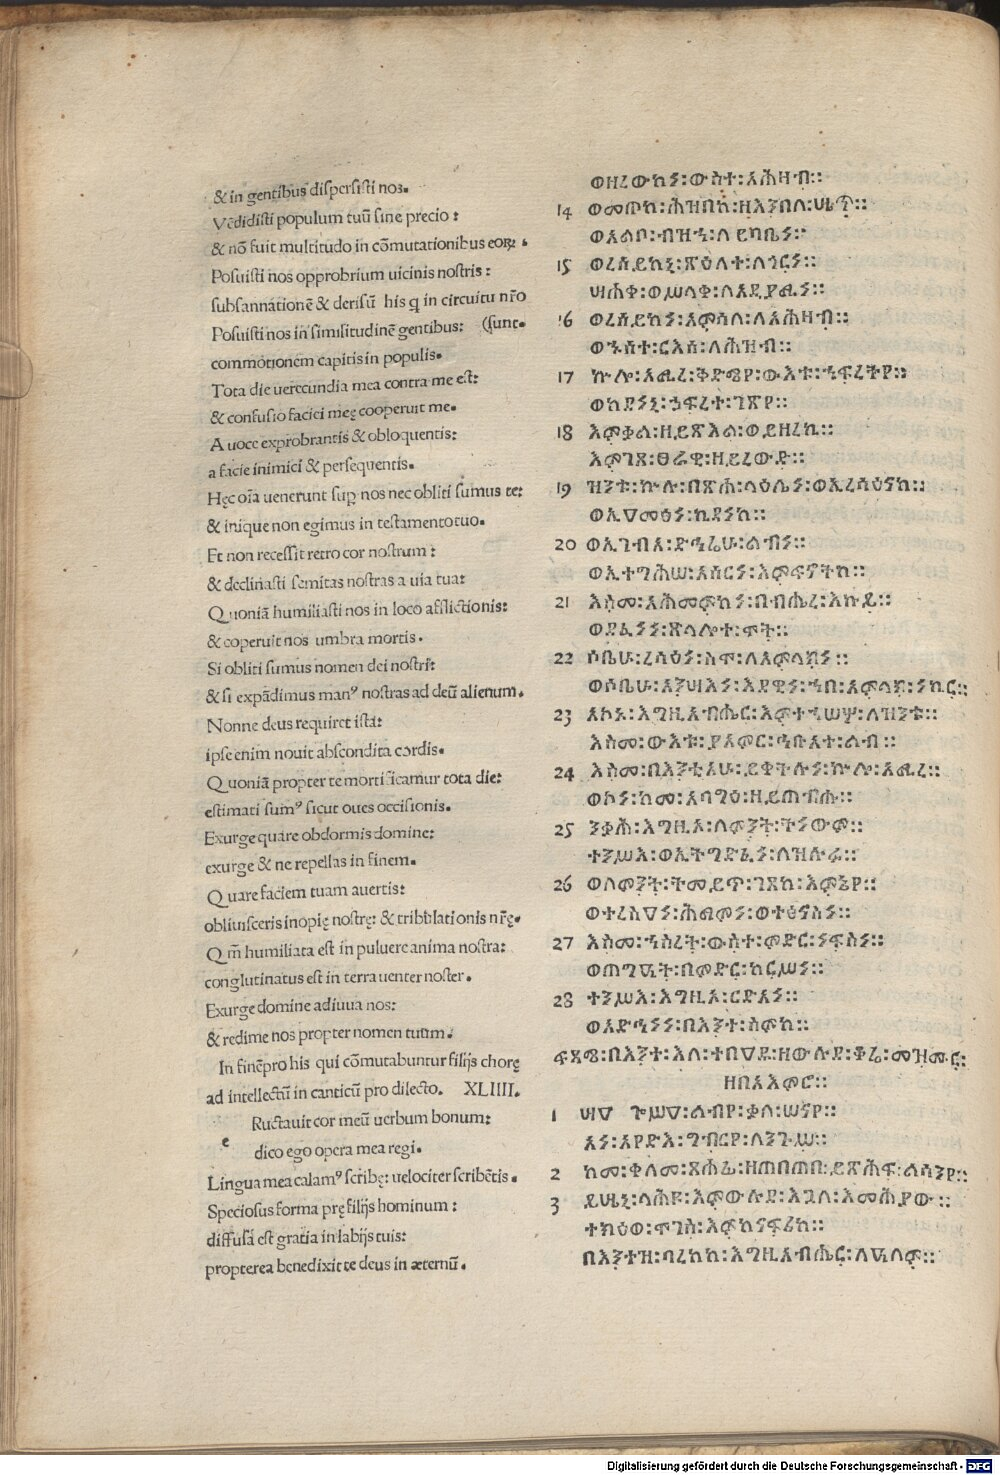 & in gentibus dispersisti nos.
Vēdidisti populum tuū sine precio :
& nō fuit multitudo in cōmutationibus eoꝝ .
Posuisti nos opprobrium uicinis nostris :
subsannationē & derisū his q in circuitu nr̄o
Posuisti nos in similitudinē gentibus: (sunt.
commotionem capitis in populis.
Tota die uerecundia mea contra me est:
& confusio faciei meę cooperuit me.
A uoce exprobrantis & obloquentis:
a facie inimici & persequentis.
Hęc oīa uenerunt sup nos nec obliti sumus te:
& inique non egimus in testamento tuo.
Et non recessit retro cor nostrum :
& declinasti semitas nostras a uia tua:
Quoniā humiliasti nos in loco afflictionis:
& coperuit nos umbra mortis .
Si obliti sumus nomen dei nostri:
& si expādimus manꝰ nostras ad deū alienum.
Nonne deus requiret ista:
ipse enim nouit abscondita cordis.
Quoniā propter te mortificamur tota die:
estimati sumꝰ sicut oues occisionis.
Exurge quare obdormis domine:
exurge & ne repellas in finem.
Quare faciem tuam auertis:
obliuisceris inopię nostrę: & tribulationis nr̄ę.
Qm̄ humiliata est in puluere anima nostra:
conglutinatus est in terra uenter noster .
Exurge domine adiuua nos:
& redime nos propter nomen tuum.
In finē pro his qui cōmutabuntur filijs chorę
ad intellectū in canticū pro dilecto. XLIIII.
Ructauit cor meū uerbum bonum:
e
dico ego opera mea regi.
Lingua mea calamꝰ scribę: uelociter scribētis .
Speciosus forma prę filijs hominum :
diffusa est gratia in labijs tuis:
propterea benedixit te deus in æternū.
ወዘረውከነ፡ውስተ፡አሕዛብ።
14 ሕዝበከ፡ዘእንበለ፡ሤጥ።
ወአልቦ፡ብዝኀ፡
15 ወረሰይከነ፡ጽዕለተ፡ለጎርነ።
ወሥላቀ፡
16 ወረሰይከነ፡አምሳለ፡ለአሕዛብ።
ወኁሰተ፡ርእስ፡ለሕዝብ።
17 ኵሎ፡አሚረ፡ቅድሜየ፡ውእቱ፡ኀፍረትየ።
ወከደነኒ፡ኀፍረተ፡ገጽየ።
18 እምቃለ፡ዘይጽእል፡ወይዘረኪ።
እምገጸ፡
19 ዝንቱ፡ኵሉ፡በጽሐ፡ላዕሌነ፡ወኢረሳዕናከ።
ወኢዐመፅነ፡ኪዳነከ።
20 ወኢገብአ፡ድኅሬሁ፡ልብነ።
ወኢተግሕሠ፡አሰርነ፡እምፍኖትከ።
21 እስመ፡አሕመምከነ፡በብሔረ፡እኩይ።
ወደፈነነ፡ጽላሎተ፡ሞት።
22 ሶበሁ፡ረሳዕነ፡ስመ፡ለአምላክነ።
ወሶበሁ፡አንሣእነ፡እደዊነ፡ኀበ፡አምላክ፡ነኪር።
23 አኮኑ፡እግዚአብሔር፡እምተኃሠሦ፡ለዝንቱ።
እስመ፡ውእቱ፡ያአምር፡ኅቡአተ፡ልብ።
24 እስመ፡በእንቲአሁ፡ይቀትሉነ፡ኵሎ፡አሚረ።
ወኮነ፡ከመ፡አባግዕ፡ዘይጠብሑ።
25 ንቃህ፡እግዚኦ፡ለምንት፡ትነውም።
ተንሥእ፡ወኢትግድፈነ፡ለዝሉፉ።
26 ወለምንት፡ትመይጥ፡ገጸከ፡እምኔየ።
ወትረስዐነ፡ሕማመነ፡
27 እስመ፡ኀስረት፡ውስተ፡ምድር፡ነፍስነ።
ወጠግዐት፡በምድር፡ከርሥነ።
28 ተንሥእ፡እግዚኦ፡ርድአነ።
ወአድኅነነ፡በእንተ፡ስምከ።
በእንተ፡እለ፡ ቆሬ፡መዝሙር፡
1 ጐሥዐ፡ልብየ፡ቃለ፡ሠናየ።
አነ፡አየድዕ፡ግብርየ፡ለንጉሥ።
2 ከመ፡ቀለመ፡ጸሓፊ፡ዘጠበጠበ፡ይጽሕፍ፡ልሳንየ።
3 ይሤኒ፡ላሕዩ፡እምውሉደ፡እጓለ፡እመሕያው።
ተክዕወ፡ሞገስ፡እምከናፍሪከ።
በእንተዝ፡ባረከከ፡እግዚአብሔር፡ለዓለም።
Digitalisierung gefördert durch die Deutsche Forschungsgemeinschaft - DFG